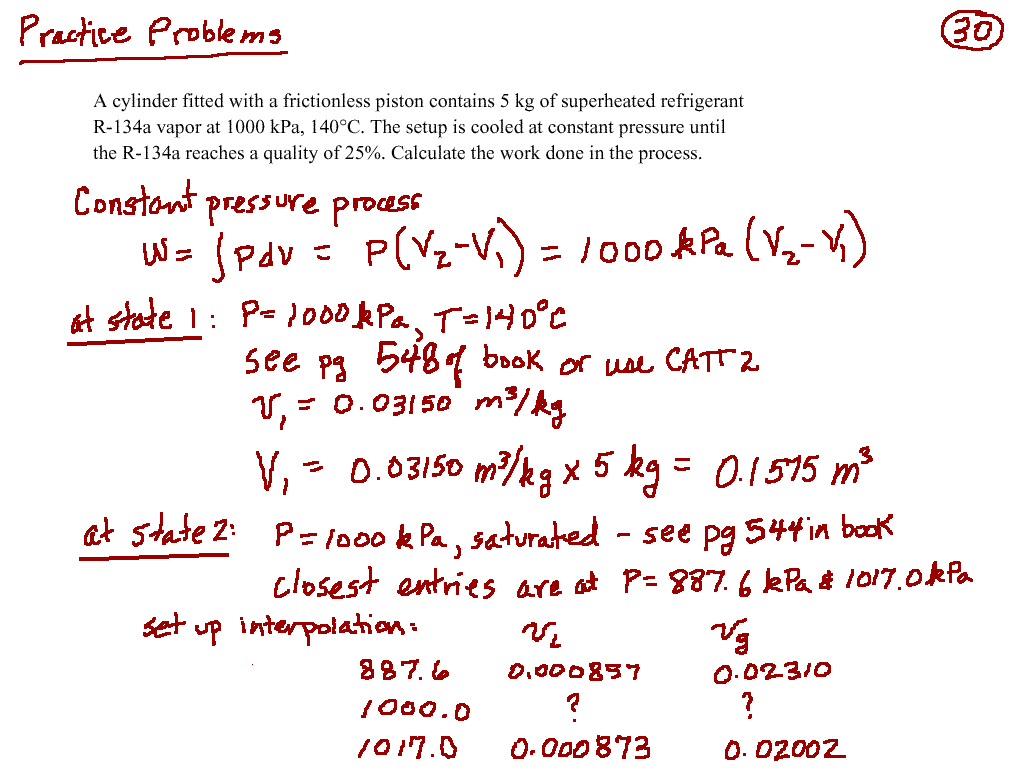 Practice Problems
30
A cylinder fitted with a frictionless piston contains 5 kg of superheated refrigerant
R-134a vapor at 1000 kPa, 140°C. The setup is cooled at constant pressure until
the R-134a reaches a quality of 25%. Calculate the work done in the process.
Constant pressure process
W = ∫ P dV = P(V₂-V₁) = 1000 kPa (V₂-V₁)
at state 1: P= 1000 kPa, T=140°C
see pg 548 of book or use CATT2
v₁ = 0.03150 m³/kg
V₁ = 0.03150 m³/kg x 5 kg = 0.1575 m³
at state 2: P=1000 kPa, saturated - see pg 544 in book
closest entries are at P= 887.6 kPa & 1017.0 kPa
set up interpolation: v_L v_g
887.6 0.000857 0.02310
1000.0 ? ?
1017.0 0.000873 0.02002